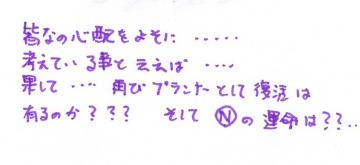 皆なの心配をよそに……
考えている事と云えば….
果して…. 再びプランナーとして復活は
有るのか??? そしてⓃの運命は??..